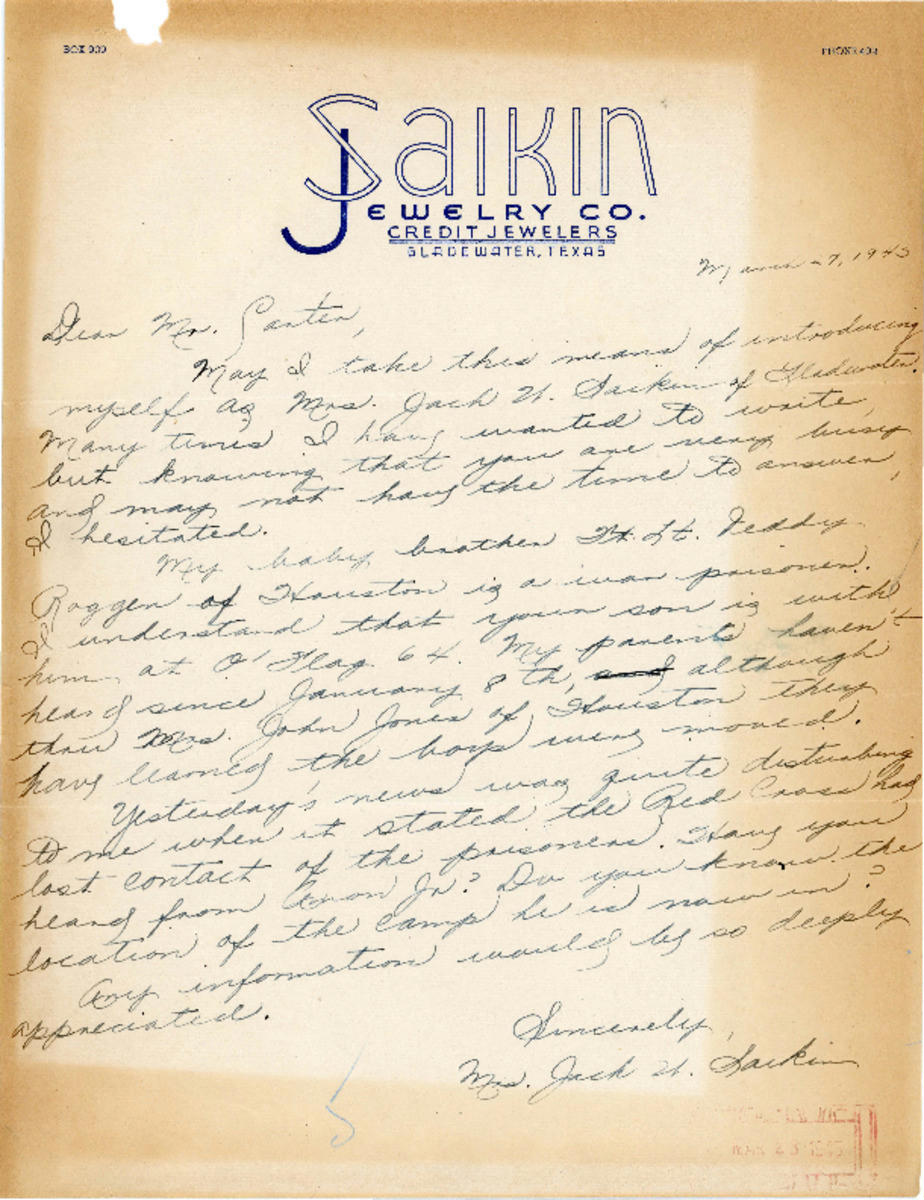 BOX 939
PHONE 494
Saikin
JEWELRY CO.
CREDIT JEWELERS
GLADEWATER, TEXAS
March 27, 1945
Dear Mr. Carter,
May I take this means of introducing
myself as Mrs. Jack H. Saikin of Gladewater.
Many times I have wanted to write,
but knowing that you are very busy
and may not have the time to answer,
I hesitated.
My baby brother Lt. Teddy
Roggen of Houston is a war prisoner.
I understand that your son is with
him at O'Flag 64. My parents haven't
heard since January 8th, and although
thru Mrs. John Jones of Houston they
have learned the boys were moved.
Yesterday's news was quite disturbing
to me when it stated the Red Cross had
lost contact of the prisoners. Have you
heard from Amon Jr.? Do you know the
location of the camp he is now in?
Any information would be so deeply
appreciated.
Sincerely,
Mrs. Jack H. Saikin